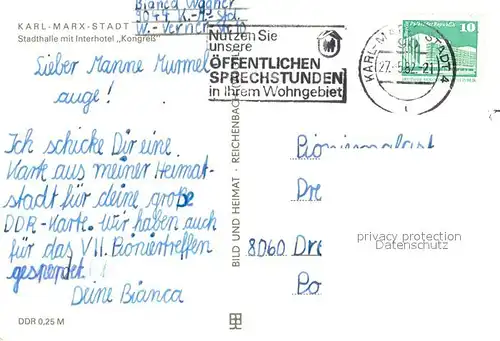 KARL-MARX-STADT
Stadthalle mit Interhotel „Kongreß"
Bianca Wagner
9044 K.-M.-Std.
W.-Verner-Str.
Nutzen Sie
unsere
ÖFFENTLICHEN
SPRECHSTUNDEN
in Ihrem Wohngebiet
KARL-MARX-STADT 4
27.-5.82.-21
10
Lieber Manne Murmel
auge!
Ich schicke Dir eine
Karte aus meiner Heimat-
stadt für deine große
DDR-Karte. Wir haben auch
für das VII. Pioniertreffen
gespendet.
Deine Bianca
DDR 0,25 M
BILD UND HEIMAT · REICHENBACH
Pionierpalast
Dre
8060 Dre
Po
privacy protection
Datenschutz